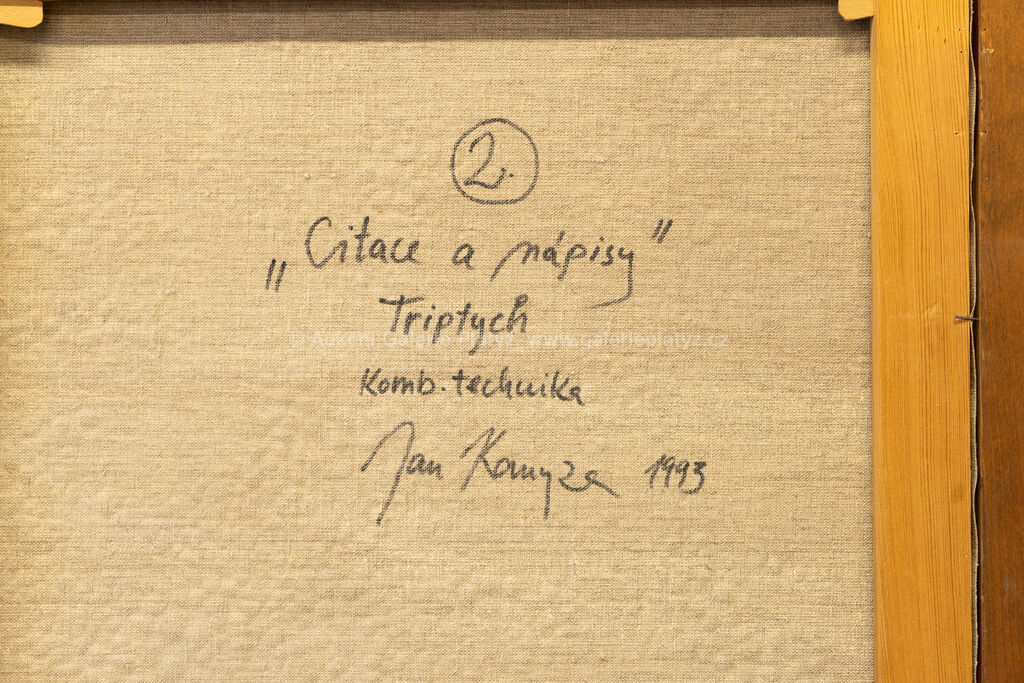 2.
„Citace a nápisy"
Triptych
© Aukční Galerie Platýz, www.galerieplatyz.cz
Komb. technika
Jan Kanyza 1993